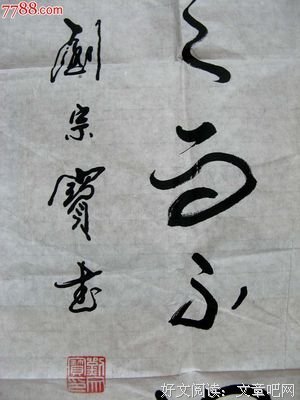 7788.com
之而不
劉宗寶書
好文阅读：文章吧网